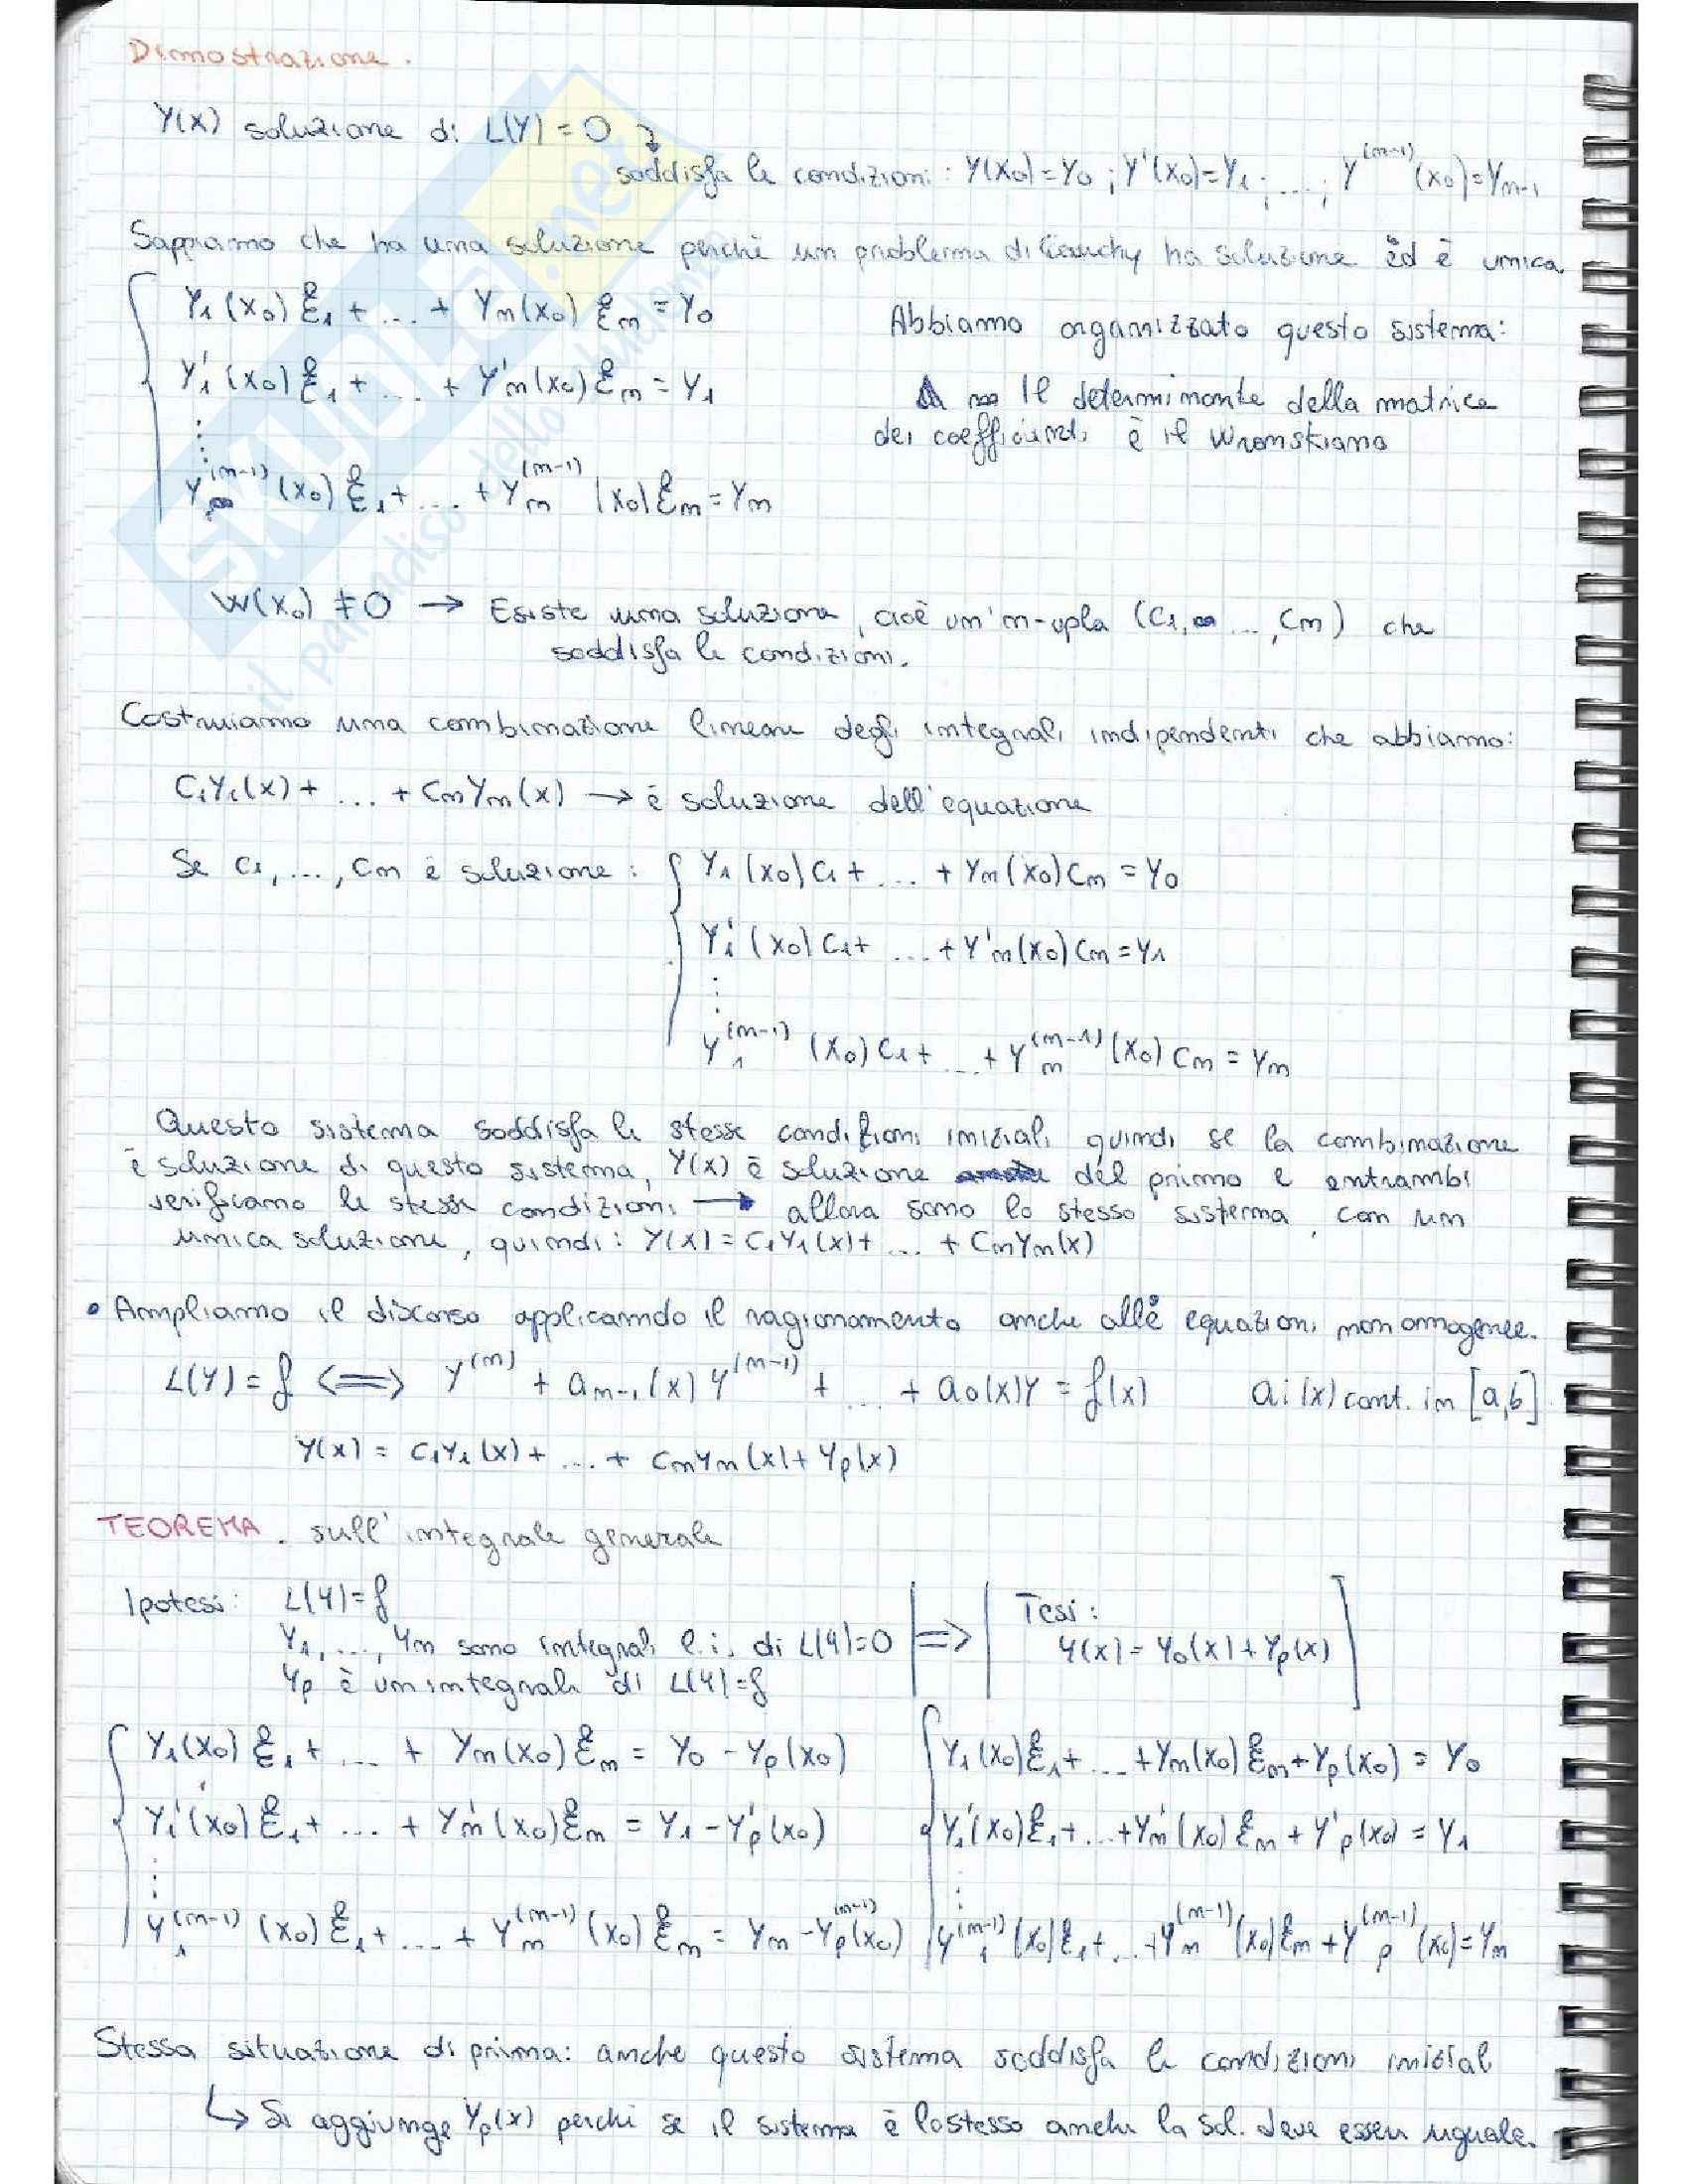 Dimostrazione.
Y(x) soluzione di L(Y) = 0
soddisfa le condizioni: Y(x₀)=Y₀ ; Y'(x₀)=Y₁ ; ... ; Y⁽ⁿ⁻¹⁾(x₀)=Yₙ₋₁
Sappiamo che ha una soluzione perché un problema di Cauchy ha soluzione ed è unica
Y₁(x₀)ξ₁ + ... + Yₙ(x₀)ξₙ = Y₀
Abbiamo organizzato questo sistema:
Y₁'(x₀)ξ₁ + ... + Y'ₙ(x₀)ξₙ = Y₁
Il determinante della matrice
dei coefficienti è il Wronskiano
⋮
Y⁽ⁿ⁻¹⁾(x₀)ξ₁ + ... + Yₙ⁽ⁿ⁻¹⁾(x₀)ξₙ = Yₙ
W(x₀) ≠ 0 → Esiste una soluzione, cioè un'n-upla (C₁, ..., Cₙ) che
soddisfa le condizioni.
Costruiamo una combinazione lineare degli integrali indipendenti che abbiamo:
C₁Y₁(x) + ... + CₙYₙ(x) → è soluzione dell'equazione
Se C₁, ..., Cₙ è soluzione : Y₁(x₀)C₁ + ... + Yₙ(x₀)Cₙ = Y₀
Y₁'(x₀)C₁ + ... + Y'ₙ(x₀)Cₙ = Y₁
⋮
Y₁⁽ⁿ⁻¹⁾(x₀)C₁ + ... + Yₙ⁽ⁿ⁻¹⁾(x₀)Cₙ = Yₙ
Questo sistema soddisfa le stesse condizioni iniziali quindi se la combinazione
è soluzione di questo sistema, Y(x) è soluzione del primo e entrambi
verificano le stesse condizioni → allora sono lo stesso sistema, con un
unica soluzione, quindi: Y(x) = C₁Y₁(x) + ... + CₙYₙ(x)
• Ampliamo il discorso applicando il ragionamento anche alle equazioni non omogenee.
L(Y) = f ⟺ Y⁽ⁿ⁾ + aₙ₋₁(x)Y⁽ⁿ⁻¹⁾ + ... + a₀(x)Y = f(x) ai(x) cont. in [a,b]
Y(x) = C₁Y₁(x) + ... + CₙYₙ(x) + Yp(x)
TEOREMA. sull'integrale generale
Ipotesi: L(Y)=f
Y₁, ..., Yₙ sono integrali l.i. di L(Y)=0
Yp è un integrale di L(Y)=f
=>
Tesi:
Y(x) = Y₀(x) + Yp(x)
Y₁(x₀)ξ₁ + ... + Yₙ(x₀)ξₙ = Y₀ - Yp(x₀)
Y₁'(x₀)ξ₁ + ... + Yₙ'(x₀)ξₙ = Y₁ - Y'p(x₀)
⋮
Y₁⁽ⁿ⁻¹⁾(x₀)ξ₁ + ... + Yₙ⁽ⁿ⁻¹⁾(x₀)ξₙ = Yₙ - Yp⁽ⁿ⁻¹⁾(x₀)
Y₁(x₀)ξ₁ + ... + Yₙ(x₀)ξₙ + Yp(x₀) = Y₀
Y₁'(x₀)ξ₁ + ... + Yₙ'(x₀)ξₙ + Y'p(x₀) = Y₁
⋮
Y₁⁽ⁿ⁻¹⁾(x₀)ξ₁ + ... + Yₙ⁽ⁿ⁻¹⁾(x₀)ξₙ + Yp⁽ⁿ⁻¹⁾(x₀) = Yₙ
Stessa situazione di prima: anche questo sistema soddisfa le condizioni inizial
↳ Si aggiunge Yp(x) perché se il sistema è lo stesso anche la sol. deve essere uguale.
SKUOLA.net
il paradiso dello studente